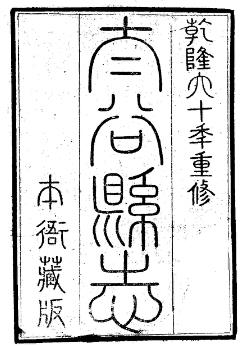 乾隆六十年重修
太谷縣志
本衙藏版